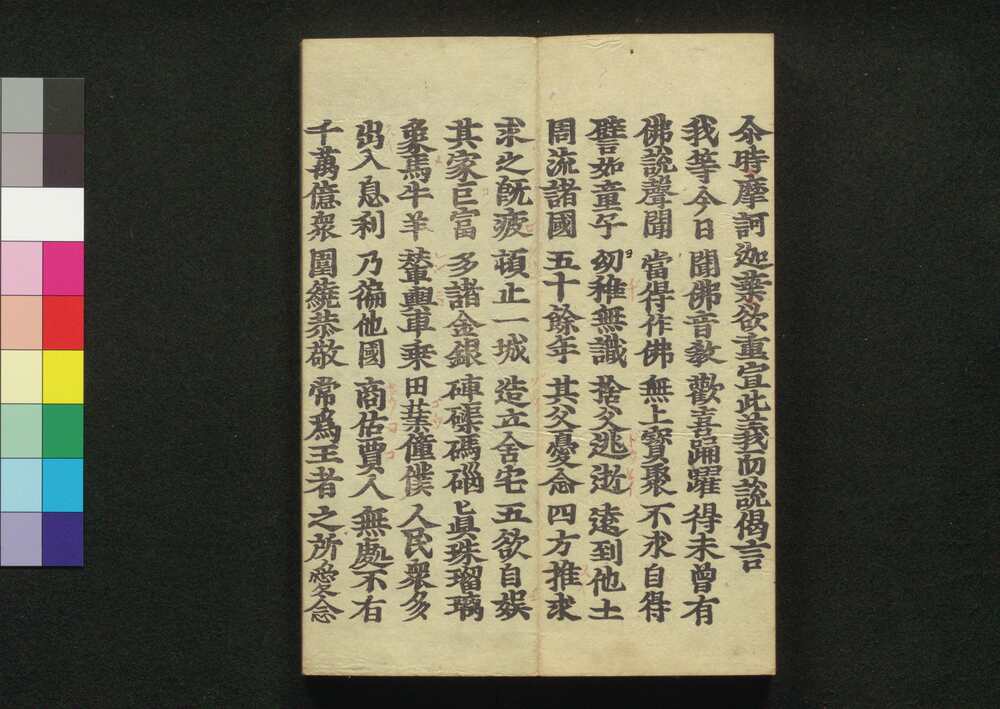 尒時摩訶迦葉欲重宣此義而說偈言
我等今日聞佛音教歡喜踊躍得未曾有
佛說聲聞當得作佛無上寶聚不求自得
譬如童子幼稚無識捨父逃逝遠到他土
周流諸國五十餘年其父憂念四方推求
求之既疲頓止一城造立舍宅五欲自娛
其家巨富多諸金銀硨磲碼碯眞珠瑠璃
象馬牛羊輦輿車乘田業僮僕人民衆多
出入息利乃徧他國商估賈人無處不有
千萬億衆圍繞恭敬常爲王者之所愛念